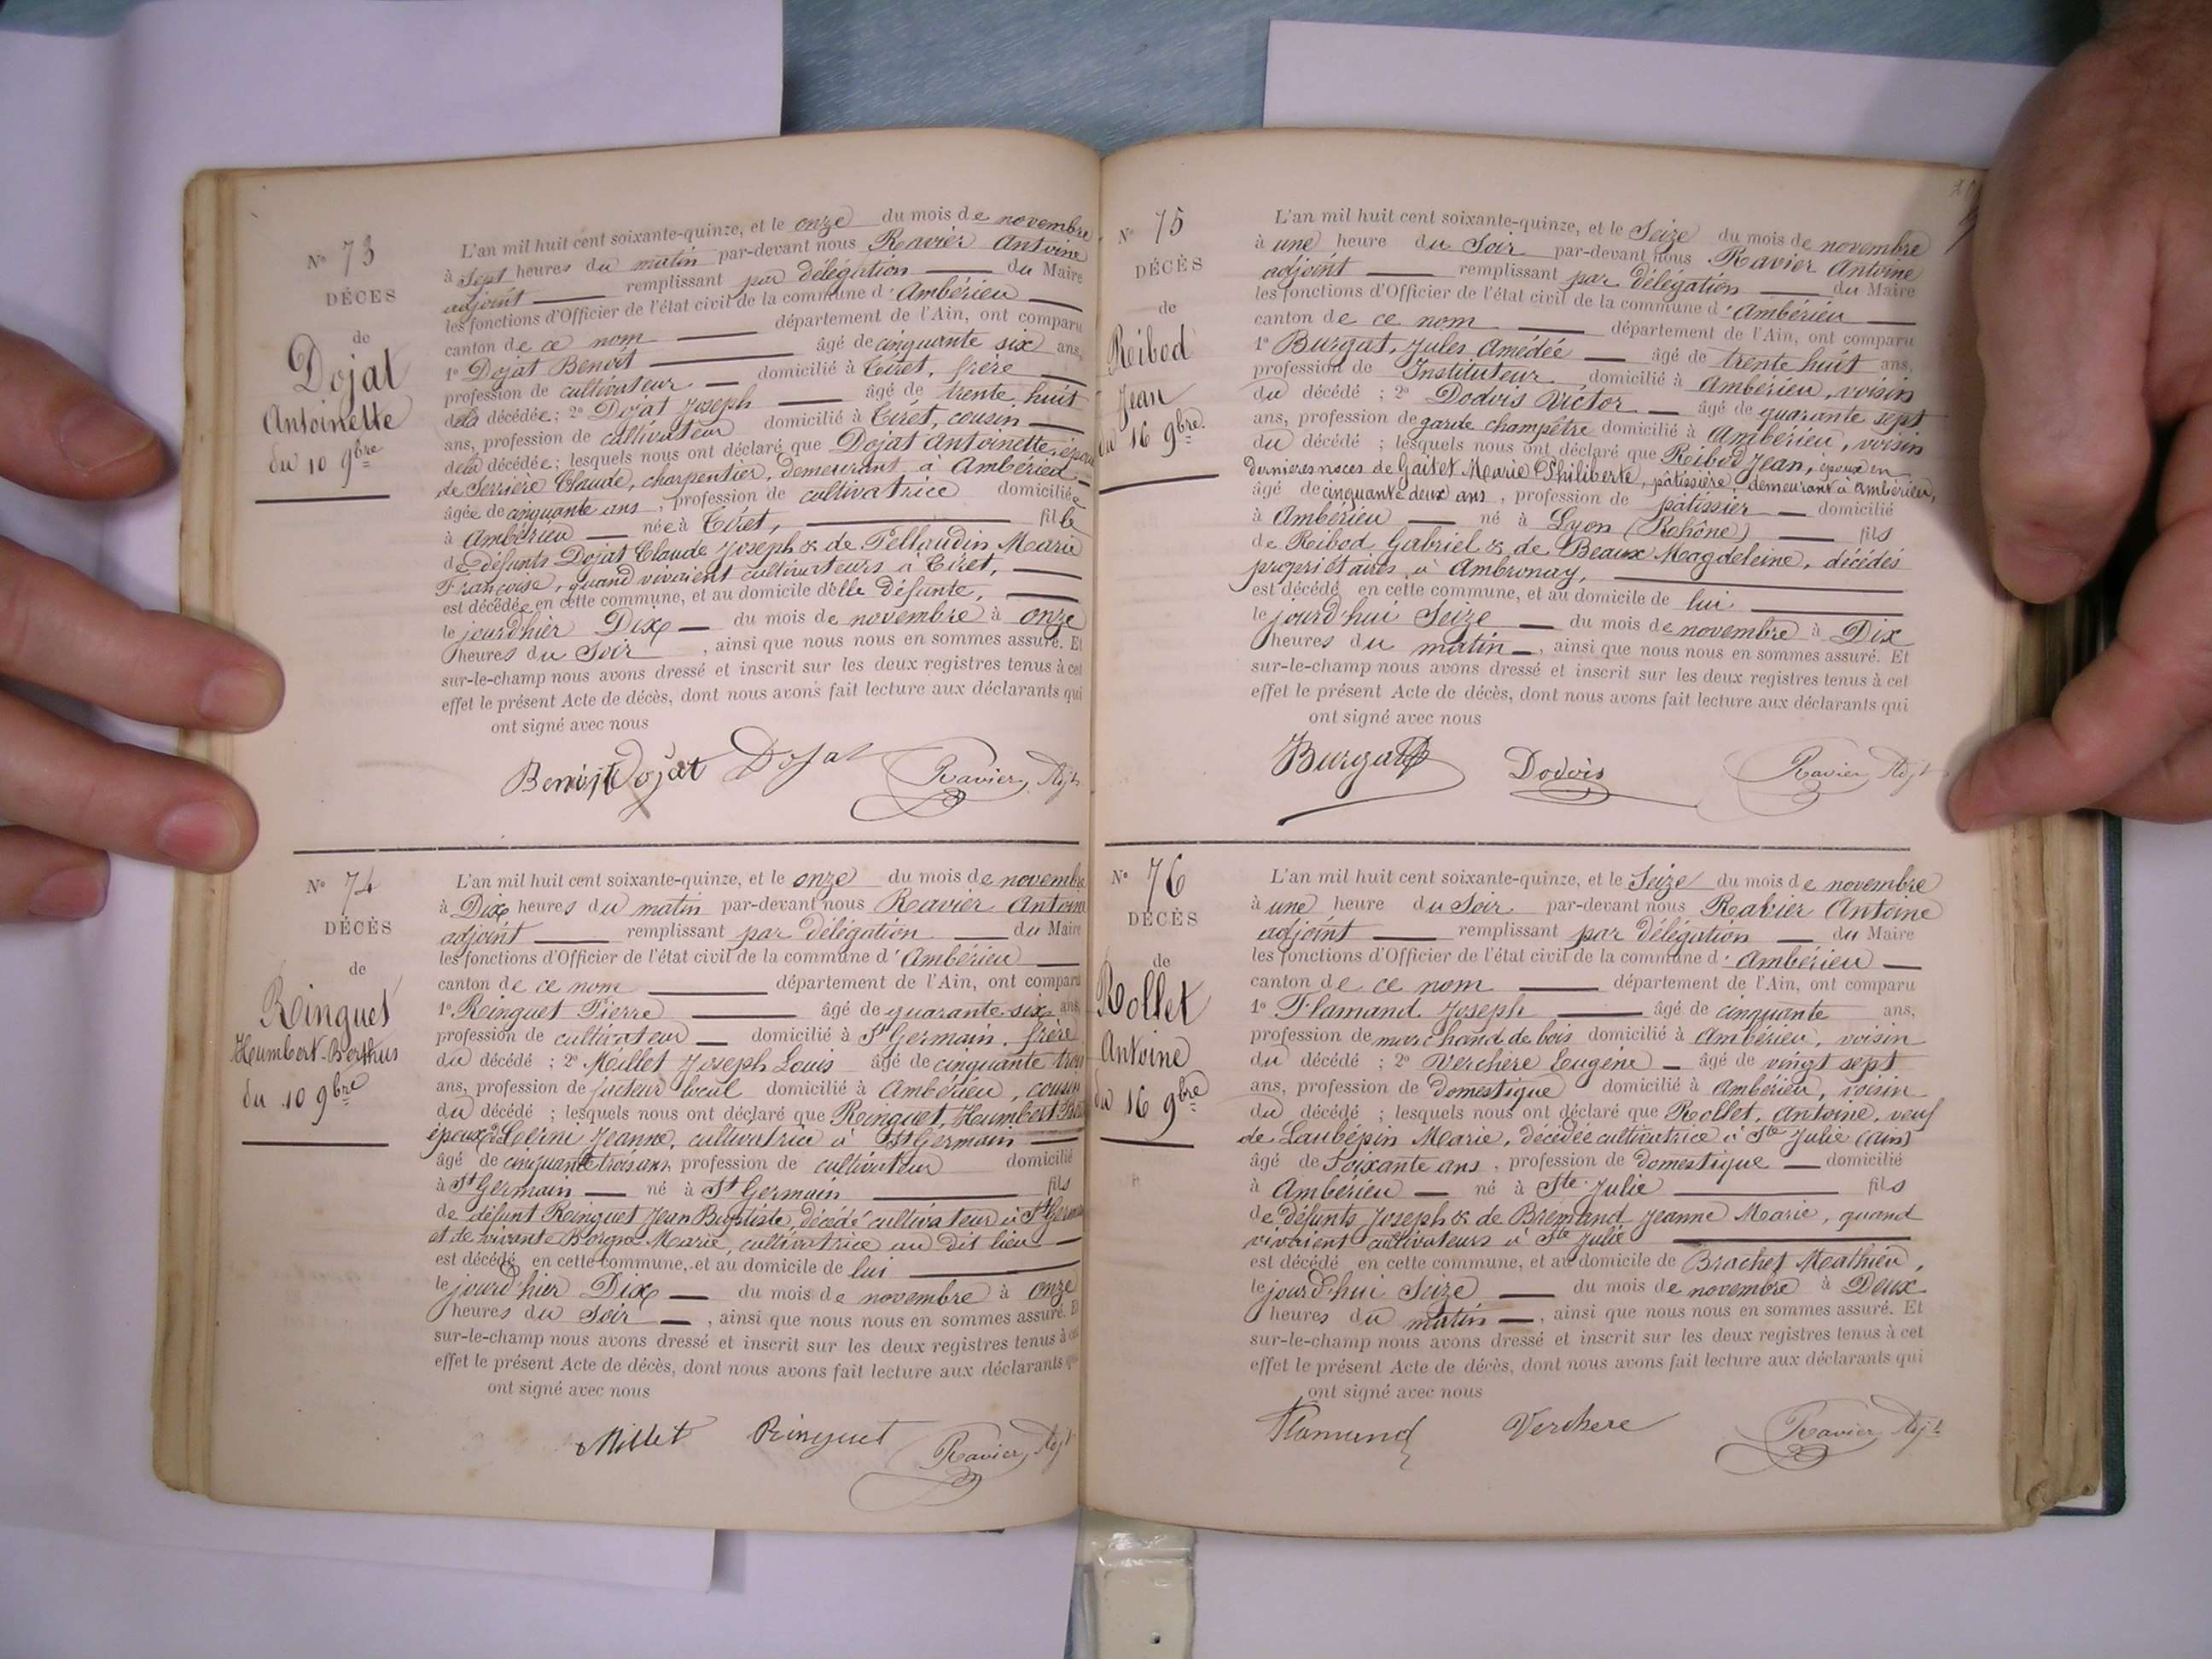 N° 73
DÉCES
de
Dojat
Antoinette
du 10 9bre
L'an mil huit cent soixante-quinze, et le onze du mois de novembre
à Sept heures du matin par-devant nous Ravier Antoine
adjoint remplissant par délégation du Maire
les fonctions d'Officier de l'état civil de la commune d'Ambérieu
canton de ce nom département de l'Ain, ont comparu
1° Dojat Benoit âgé de cinquante six ans,
profession de cultivateur domicilié à Tiret, frère
de la décédée; 2° Dojat Joseph âgé de trente huit
ans, profession de cultivateur domicilié à Tiret, cousin
de la décédée; lesquels nous ont déclaré que Dojat Antoinette, épouse
de Serrière Claude, charpentier, demeurant à Ambérieu
âgée de cinquante ans, profession de cultivatrice domiciliée
à Ambérieu née à Tiret, fille
de défunts Dojat Claude Joseph & de Pellaudin Marie
Françoise, quand vivaient cultivateurs à Tiret,
est décédée en cette commune, et au domicile d'elle défunte,
le jourd'hier Dix du mois de novembre à onze
heures du Soir, ainsi que nous nous en sommes assuré. Et
sur-le-champ nous avons dressé et inscrit sur les deux registres tenus à cet
effet le présent Acte de décès, dont nous avons fait lecture aux déclarants qui
ont signé avec nous
Benoit Dojat Dojat Ravier, Adjt
N° 74
DÉCÈS
de
Ringuet
Humbert-Berthus
du 10 9bre
L'an mil huit cent soixante-quinze, et le onze du mois de novembre
à Dix heures du matin par-devant nous Ravier Antoine
adjoint remplissant par délégation du Maire
les fonctions d'Officier de l'état civil de la commune d'Ambérieu
canton de ce nom département de l'Ain, ont comparu
1° Ringuet Pierre âgé de quarante six ans
profession de cultivateur domicilié à St Germain, frère
du décédé; 2° Millet Joseph Louis âgé de cinquante trois
ans, profession de facteur local domicilié à Ambérieu, cousin
du décédé; lesquels nous ont déclaré que Ringuet, Humbert
époux de Jeanne, cultivatrice à St Germain
âgé de cinquante trois ans, profession de cultivateur domicilié
à St Germain né à St Germain fils
de défunt Ringuet Jean Baptiste, décédé cultivateur à St Germain
et de vivante Borgne Marie, cultivatrice au dit lieu
est décédé en cette commune, et au domicile de lui
le jourd'hier Dix du mois de novembre à onze
heures du Soir, ainsi que nous nous en sommes assuré. Et
sur-le-champ nous avons dressé et inscrit sur les deux registres tenus à cet
effet le présent Acte de décès, dont nous avons fait lecture aux déclarants qui
ont signé avec nous
Millet Ringuet Ravier, Adjt
N° 75
DÉCÈS
de
Reibod
Jean
du 16 9bre
L'an mil huit cent soixante-quinze, et le Seize du mois de novembre
à une heure du Soir par-devant nous Ravier Antoine
adjoint remplissant par délégation du Maire
les fonctions d'Officier de l'état civil de la commune d'Ambérieu
canton de ce nom département de l'Ain, ont comparu
1° Burgat, Jules Amédée âgé de trente huit ans,
profession de Instituteur domicilié à Ambérieu, voisin
du décédé; 2° Dodois Victor âgé de quarante sept
ans, profession de garde champêtre domicilié à Ambérieu, voisin
du décédé; lesquels nous ont déclaré que Reibod Jean, époux en
dernières noces de Gaitet Marie Philiberte, pâtissière, demeurant à Ambérieu,
âgé de cinquante deux ans, profession de pâtissier domicilié
à Ambérieu né à Lyon (Rohône) fils
de Reibod Gabriel & de Beaux Magdeleine, décédés
propriétaires à Ambronay,
est décédé en cette commune, et au domicile de lui
le jourd'hui Seize du mois de novembre à Dix
heures du matin, ainsi que nous nous en sommes assuré. Et
sur-le-champ nous avons dressé et inscrit sur les deux registres tenus à cet
effet le présent Acte de décès, dont nous avons fait lecture aux déclarants qui
ont signé avec nous
Burgat Dodois Ravier, Adjt
N° 76
DÉCÈS
de
Rollet
Antoine
du 16 9bre
L'an mil huit cent soixante-quinze, et le Seize du mois de novembre
à une heure du Soir par-devant nous Ravier Antoine
adjoint remplissant par délégation du Maire
les fonctions d'Officier de l'état civil de la commune d'Ambérieu
canton de ce nom département de l'Ain, ont comparu
1° Flamand Joseph âgé de cinquante ans,
profession de marchand de bois domicilié à Ambérieu, voisin
du décédé; 2° Verchère Eugène âgé de vingt sept
ans, profession de domestique domicilié à Ambérieu, voisin
du décédé; lesquels nous ont déclaré que Rollet, Antoine, veuf
de Laubépin Marie, décédée cultivatrice à Ste Julie (Ain)
âgé de Soixante ans, profession de domestique domicilié
à Ambérieu né à Ste Julie fils
de défunts Joseph & de Bremand Jeanne Marie, quand
vivaient cultivateurs à Ste Julie
est décédé en cette commune, et au domicile de Brachet Mathieu,
le jourd'hui Seize du mois de novembre à Deux
heures du matin, ainsi que nous nous en sommes assuré. Et
sur-le-champ nous avons dressé et inscrit sur les deux registres tenus à cet
effet le présent Acte de décès, dont nous avons fait lecture aux déclarants qui
ont signé avec nous
Flamand Verchere Ravier, Adjt